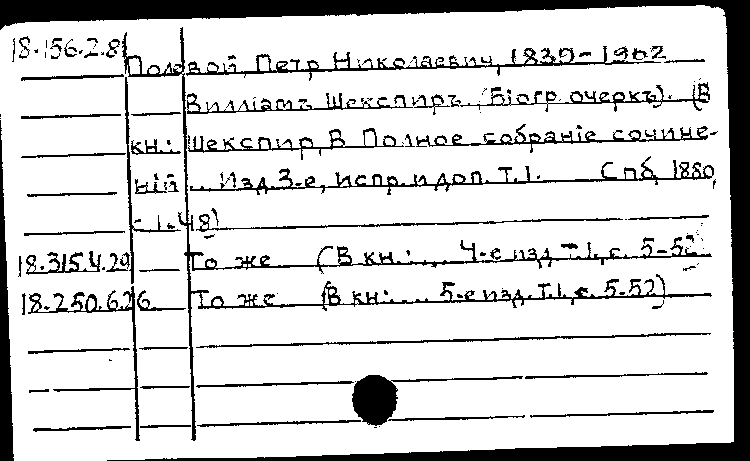 18.156.2.8
Полевой, Петр Николаевич, 1839-1902
Вилліамъ Шекспиръ. (Біогр. очеркъ). (В
кн.: Шекспир, В. Полное собраніе сочине-
ній... Изд. 3-е, испр. и доп. Т. 1. Спб, 1880,
с. 1-48)
18.315.4.29 То же (В кн.: ... 4-е изд. Т. 1, с. 5-52
18.250.6.26 То же (В кн.: ... 5-е изд. Т. 1, с. 5-52)